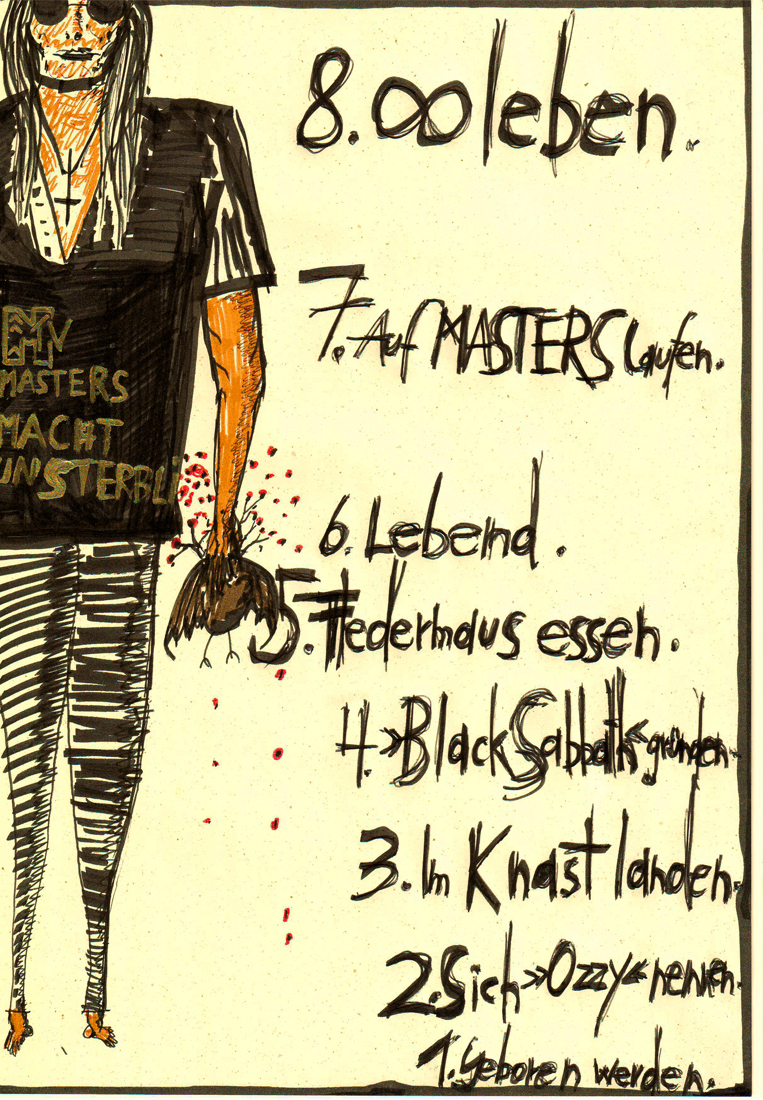 8. ∞ leben.
7. Auf MASTERS laufen.
MASTERS
MACHT
UNSTERBLI
6. Lebend.
5. Fledermaus essen.
4. »Black Sabbath« gründen.
3. Im Knast landen.
2. Sich »Ozzy« nennen.
1. Geboren werden.